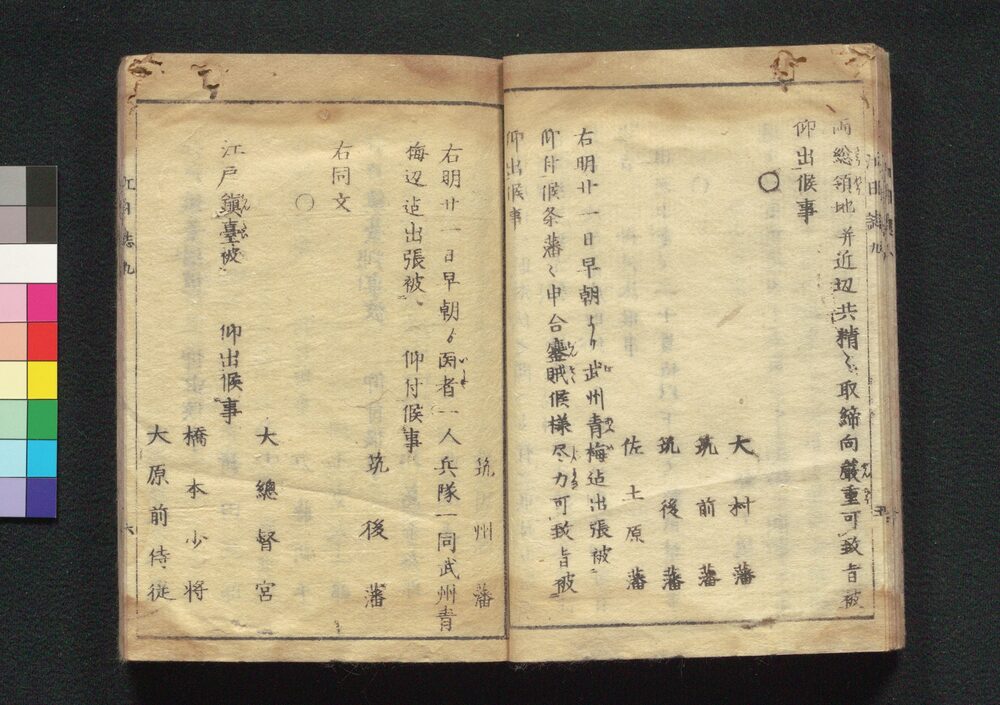 両総領地并近辺共精〻取締向厳重可致旨被
仰出候事
○
大村藩
筑前藩
筑後藩
佐土原藩
右明廿一日早朝より武州青梅迠出張被
仰付候条藩〻申合鏖賊候様尽力可致旨被
仰出候事
筑州藩
右明廿一日早朝ゟ医者一人兵隊一同武州青
梅辺迠出張被 仰付候事
筑後藩
右同文
○
大總督宮
江戸鎮臺被 仰出候事
橋本少将
大原前侍従
江日誌九
六